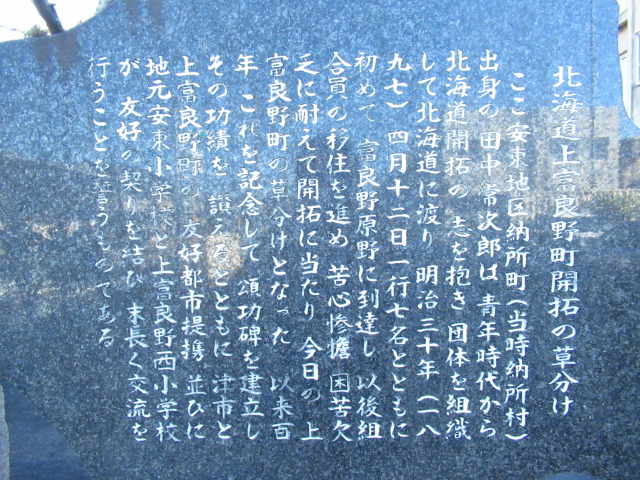 北海道上富良野町開拓の草分け
ここ安東地区納所町(当時納所村)
出身の田中常次郎は 青年時代から
北海道開拓の 志を抱き 団体を組織
して北海道に渡り 明治三十年(一八
九七)四月十二日一行七名とともに
初めて 富良野原野に到達し 以後組
合員の移住を進め 苦心惨憺 困苦欠
乏に耐えて開拓に当たり 今日の 上
富良野町の草分けとなった 以来百
年 これを記念して 頌功碑を建立し
その功績を 讃えるとともに 津市と
上富良野町の 友好都市提携 並びに
地元安東小学校と上富良野西小学校
が 友好の契りを結び 末長く交流を
行うことを誓うものである